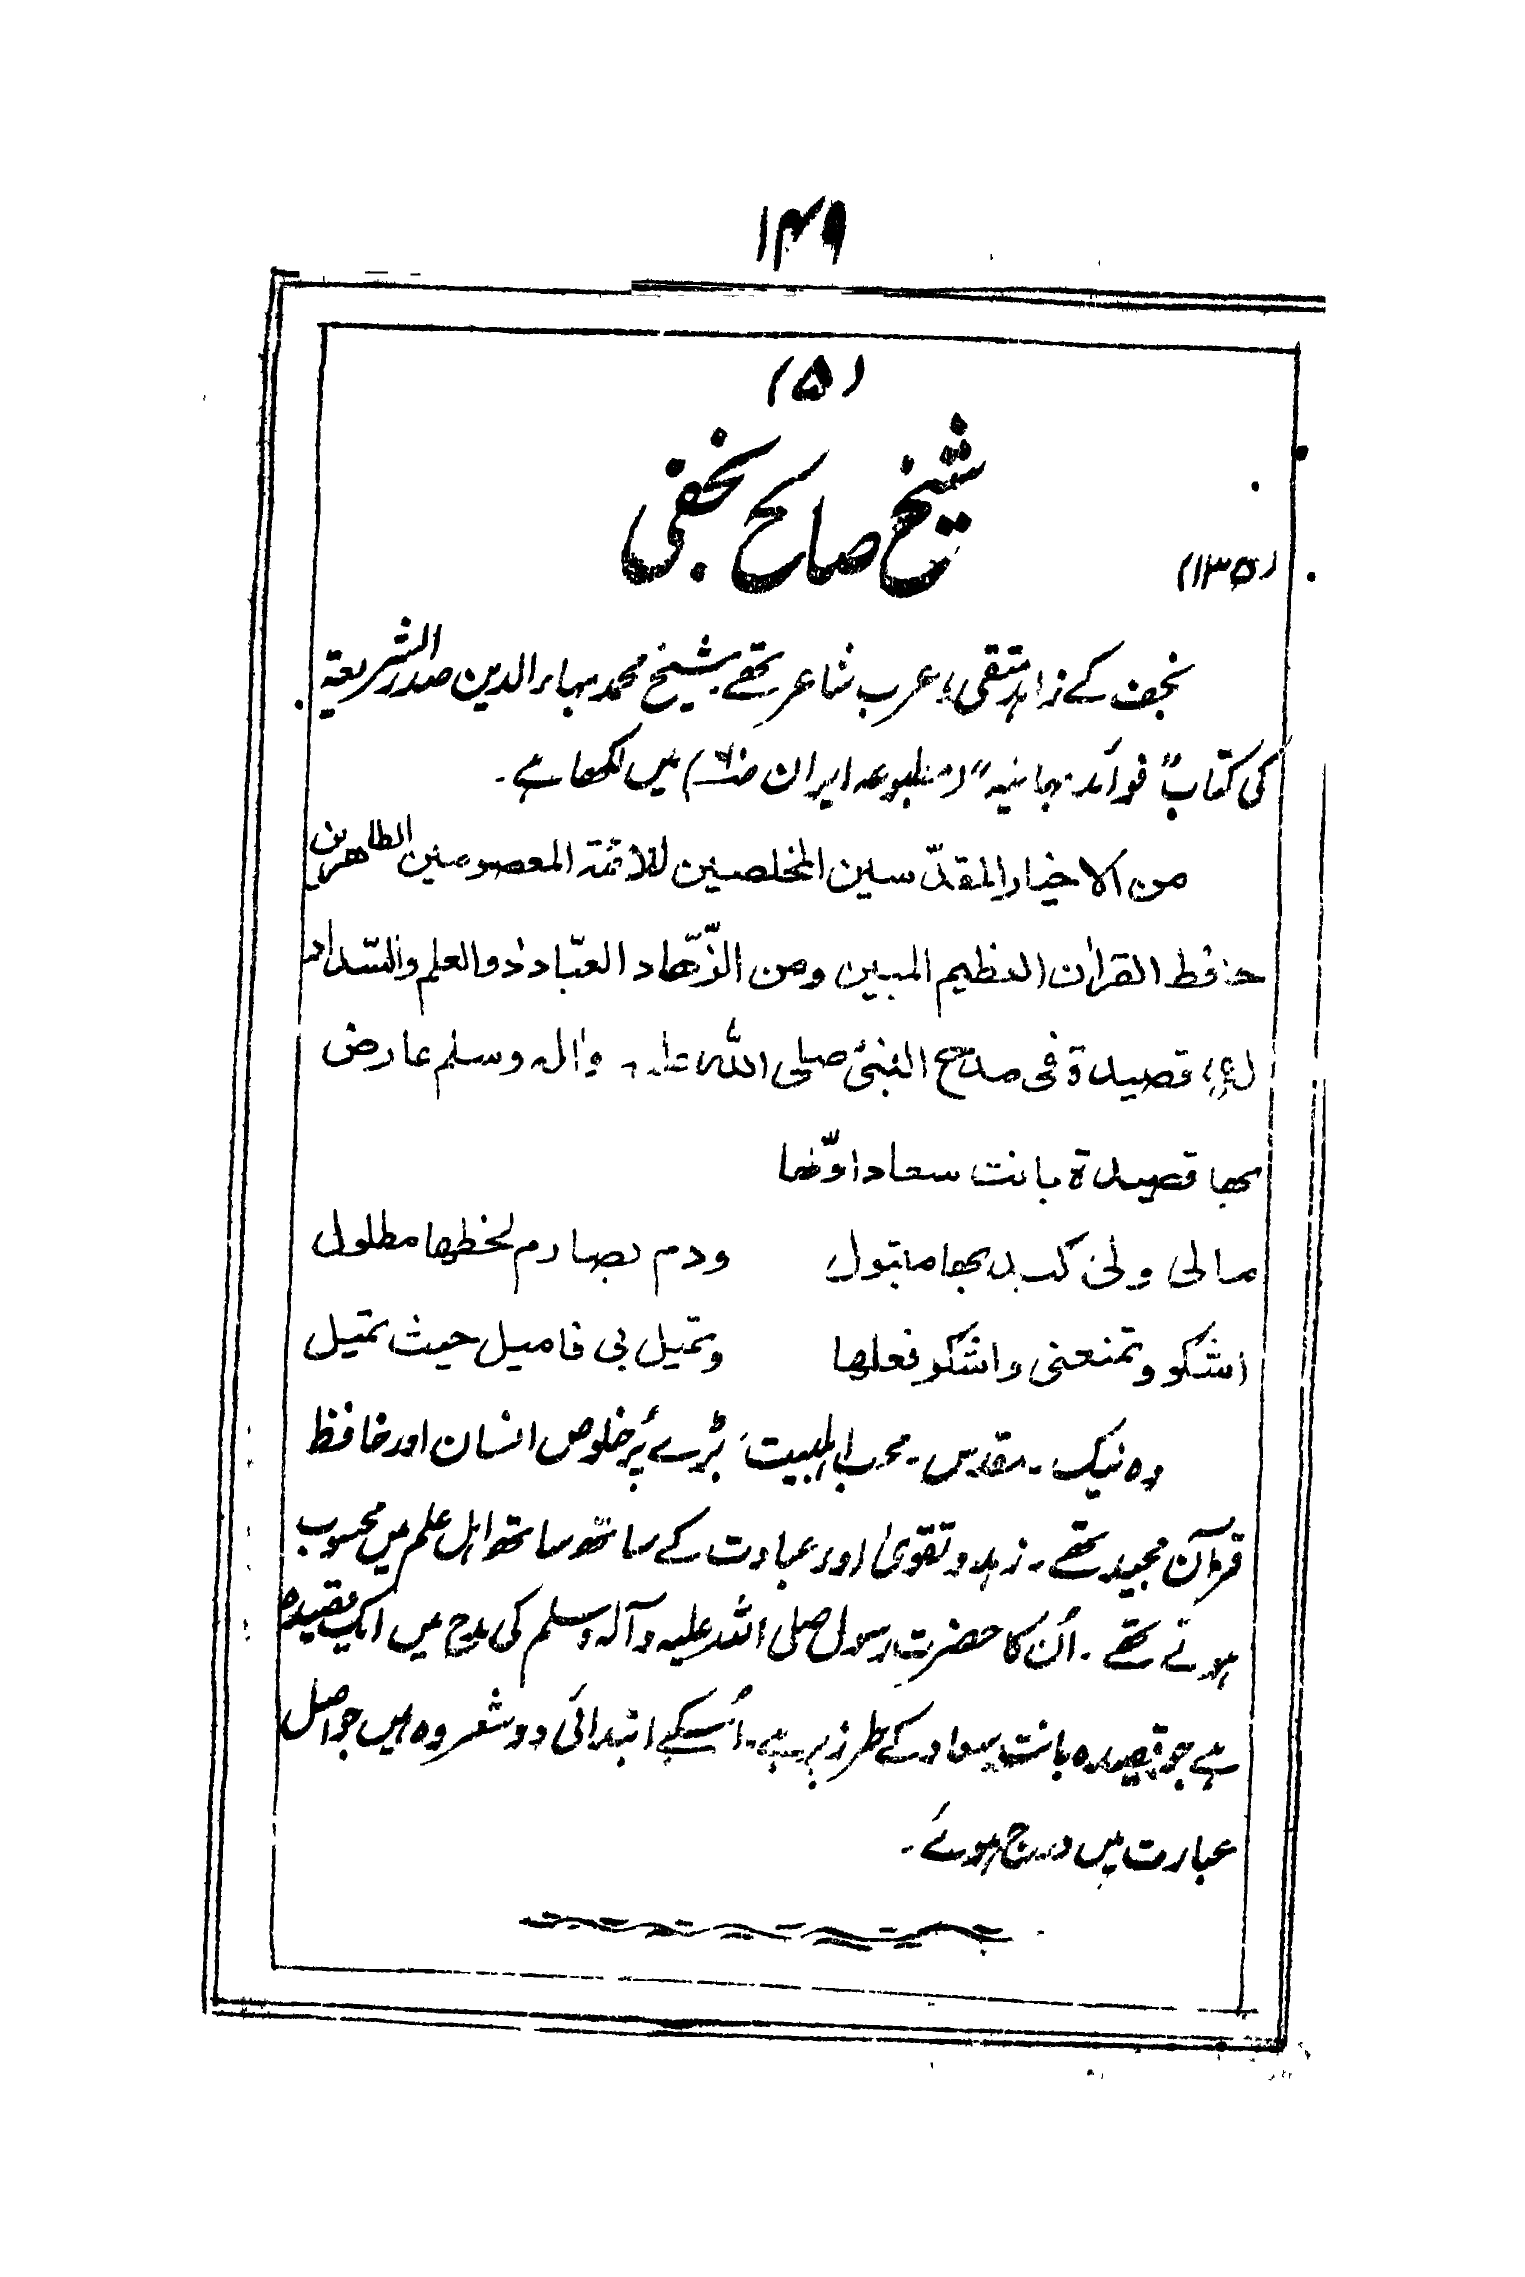 ۱۴۹
(۵)
شیخ صالح نجفی
(۱۳۵)
نجف کے زاہد متقی، عرب شاعر تھے۔ شیخ محمد بہاء الدین صدر الشریعۃ
کی کتاب "فوائد بہائیہ" (مطبوعہ ایران) میں لکھا ہے۔
من الاخیار المقدّسین المخلصین للائمۃ المعصومین الطاهرین
حافظ القراٰن العظیم المبین ومن الزّھّاد العبّاد ذو العلم والسّداد
لہ قصیدۃ فی مدح النبیّ صلی اللہ علیہ واٰلہ وسلم عارض
بھا قصیدۃ بانت سعاد اوّلھا
مالی ولی کبد بھا متبول ودم بصارم لحظھا مطلول
اشکو وتمنعنی واشکو فعلھا وتمیل بی فامیل حیث تمیل
وہ نیک۔ مقدس۔ محب اہلبیت بڑے پُر خلوص انسان اور حافظ
قرآن مجید تھے۔ زہد و تقویٰ اور عبادت کے ساتھ ساتھ اہل علم میں محسوب
ہوتے تھے۔ اُن کا حضرت رسول صلی اللہ علیہ وآلہ وسلم کی مدح میں ایک قصیدہ
ہے جو قصیدہ بانت سعاد کے طرز پر ہے۔ اُسکے ابتدائی دو شعر وہ ہیں جو اصل
عبارت میں درج ہوئے۔